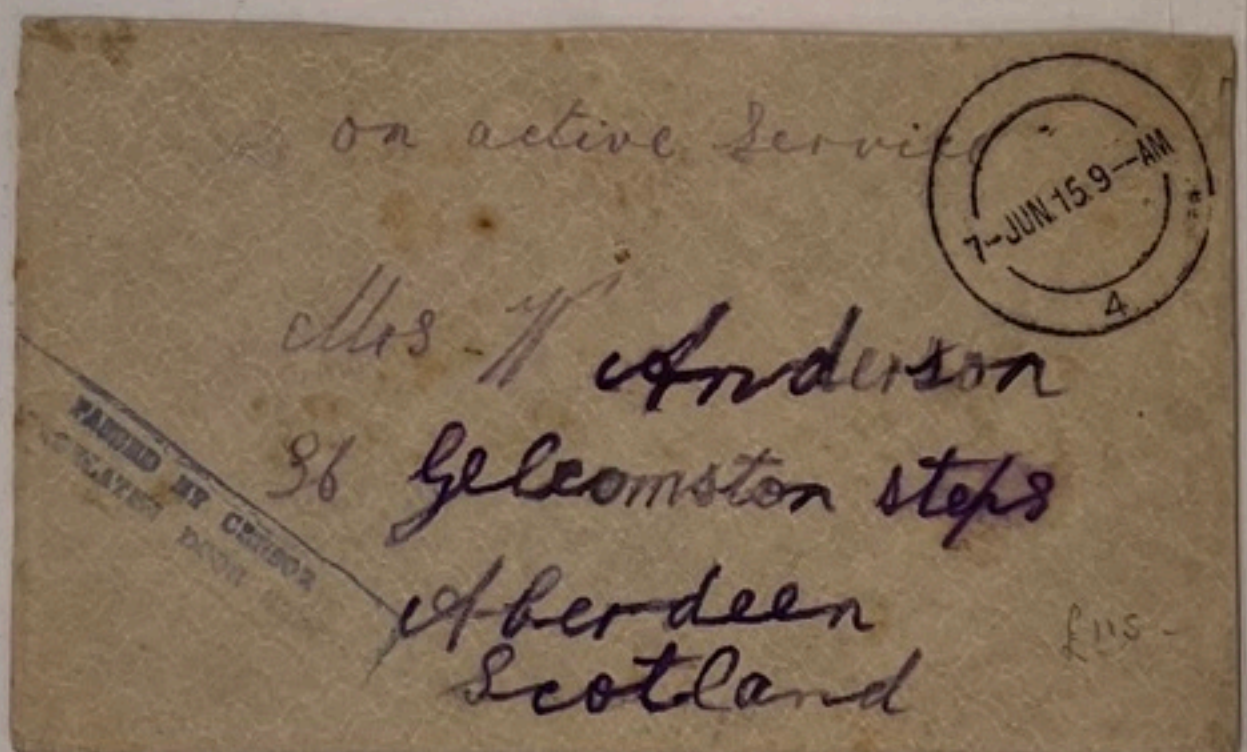 on active Service
7-JUN.15.9--AM
4
Mrs W Anderson
36 Gelcomston steps
Aberdeen
Scotland
PASSED BY CENSOR
£115-